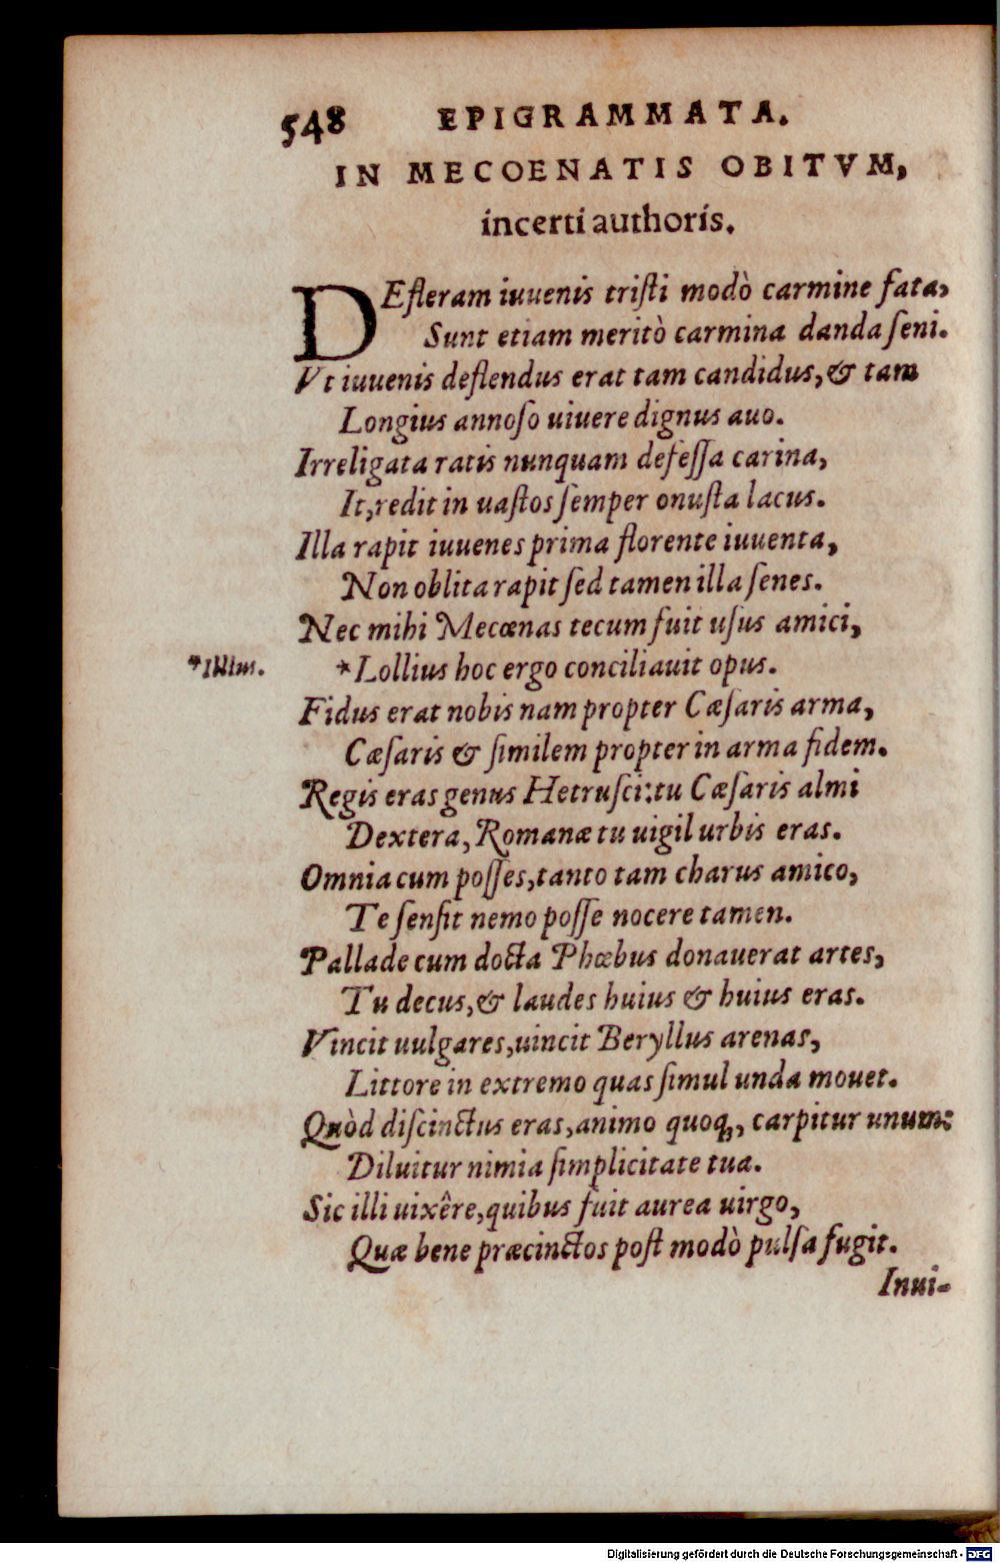 548 EPIGRAMMATA.
IN MECOENATIS OBITVM,
incerti authoris.
DEfleram iuuenis tristi modò carmine fata,
Sunt etiam meritò carmina danda seni.
Vt iuuenis deflendus erat tam candidus, & tam
Longius annoso uiuere dignus auo.
Irreligata ratis nunquam defessa carina,
It, redit in uastos semper onusta lacus.
Illa rapit iuuenes prima florente iuuenta,
Non oblita rapit sed tamen illa senes.
Nec mihi Mecœnas tecum fuit usus amici,
*Illius. *Lollius hoc ergo conciliauit opus.
Fidus erat nobis nam propter Cæsaris arma,
Cæsaris & similem propter in arma fidem.
Regis eras genus Hetrusci: tu Cæsaris almi
Dextera, Romanæ tu uigil urbis eras.
Omnia cum posses, tanto tam charus amico,
Te sensit nemo posse nocere tamen.
Pallade cum docta Phœbus donauerat artes,
Tu decus, & laudes huius & huius eras.
Vincit uulgares, uincit Beryllus arenas,
Littore in extremo quas simul unda mouet.
Quòd discinctus eras, animo quoq;, carpitur unum:
Diluitur nimia simplicitate tua.
Sic illi uixêre, quibus fuit aurea uirgo,
Quæ bene præcinctos post modò pulsa fugit.
Inui-
Digitalisierung gefördert durch die Deutsche Forschungsgemeinschaft - DFG